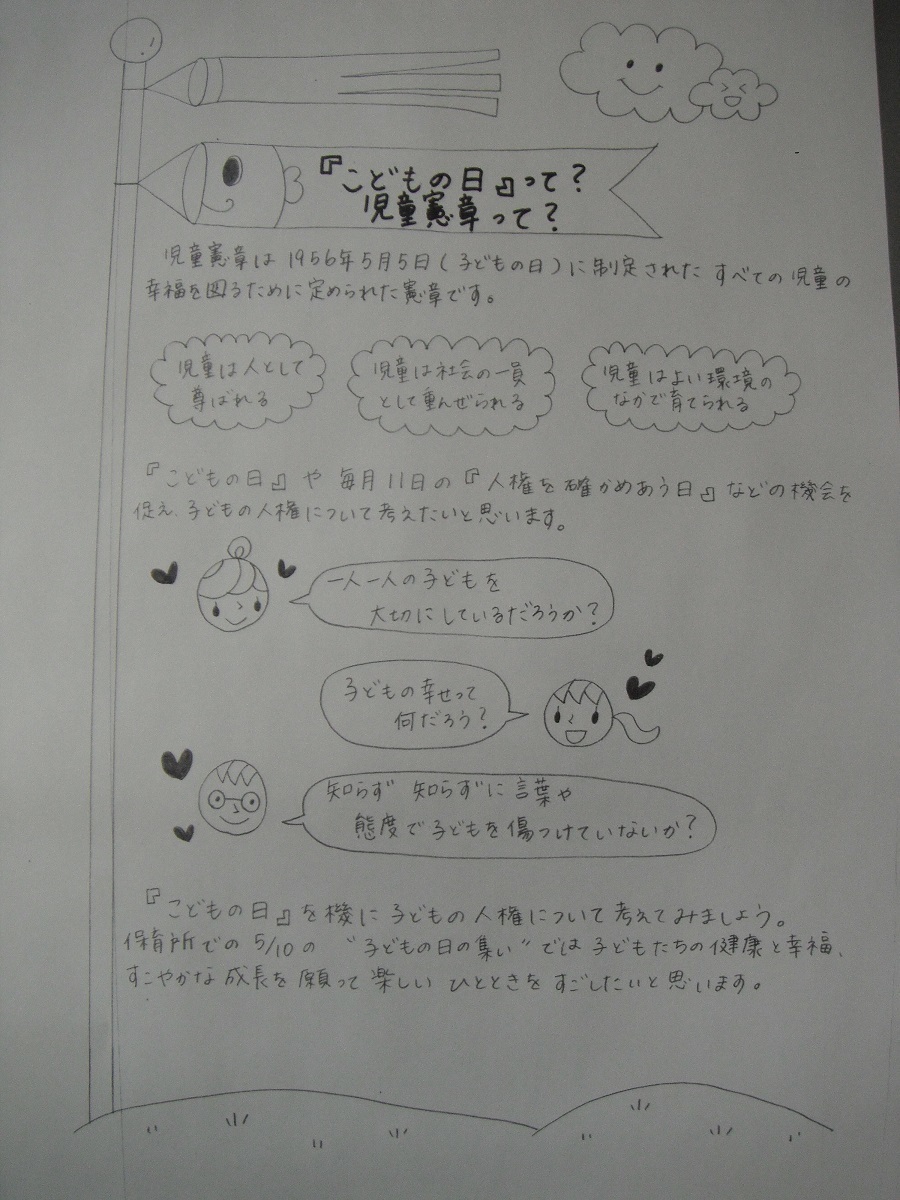 『こどもの日』って？
児童憲章って？
児童憲章は1956年5月5日(子どもの日)に制定された すべての児童の
幸福を図るために定められた憲章です。
児童は人として
尊ばれる
児童は社会の一員
として重んぜられる
児童はよい環境の
なかで育てられる
『こどもの日』や 毎月11日の『人権を確かめあう日』などの機会を
促え、子どもの人権について考えたいと思います。
一人一人の子どもを
大切にしているだろうか？
子どもの幸せって
何だろう？
知らず 知らずに言葉や
態度で子どもを傷つけていないか？
『こどもの日』を機に子どもの人権について考えてみましょう。
保育所での5/10の〝子どもの日の集い〟では子どもたちの健康と幸福、
すこやかな成長を願って楽しい ひとときをすごしたいと思います。